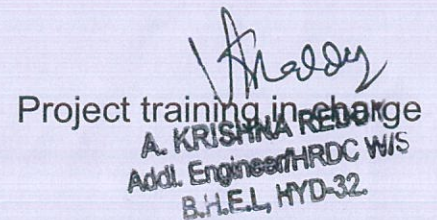 Project training in-charge
A. KRISHNA REDDY
Addl. Engineer/HRDC W/S
B.H.E.L, HYD-32.